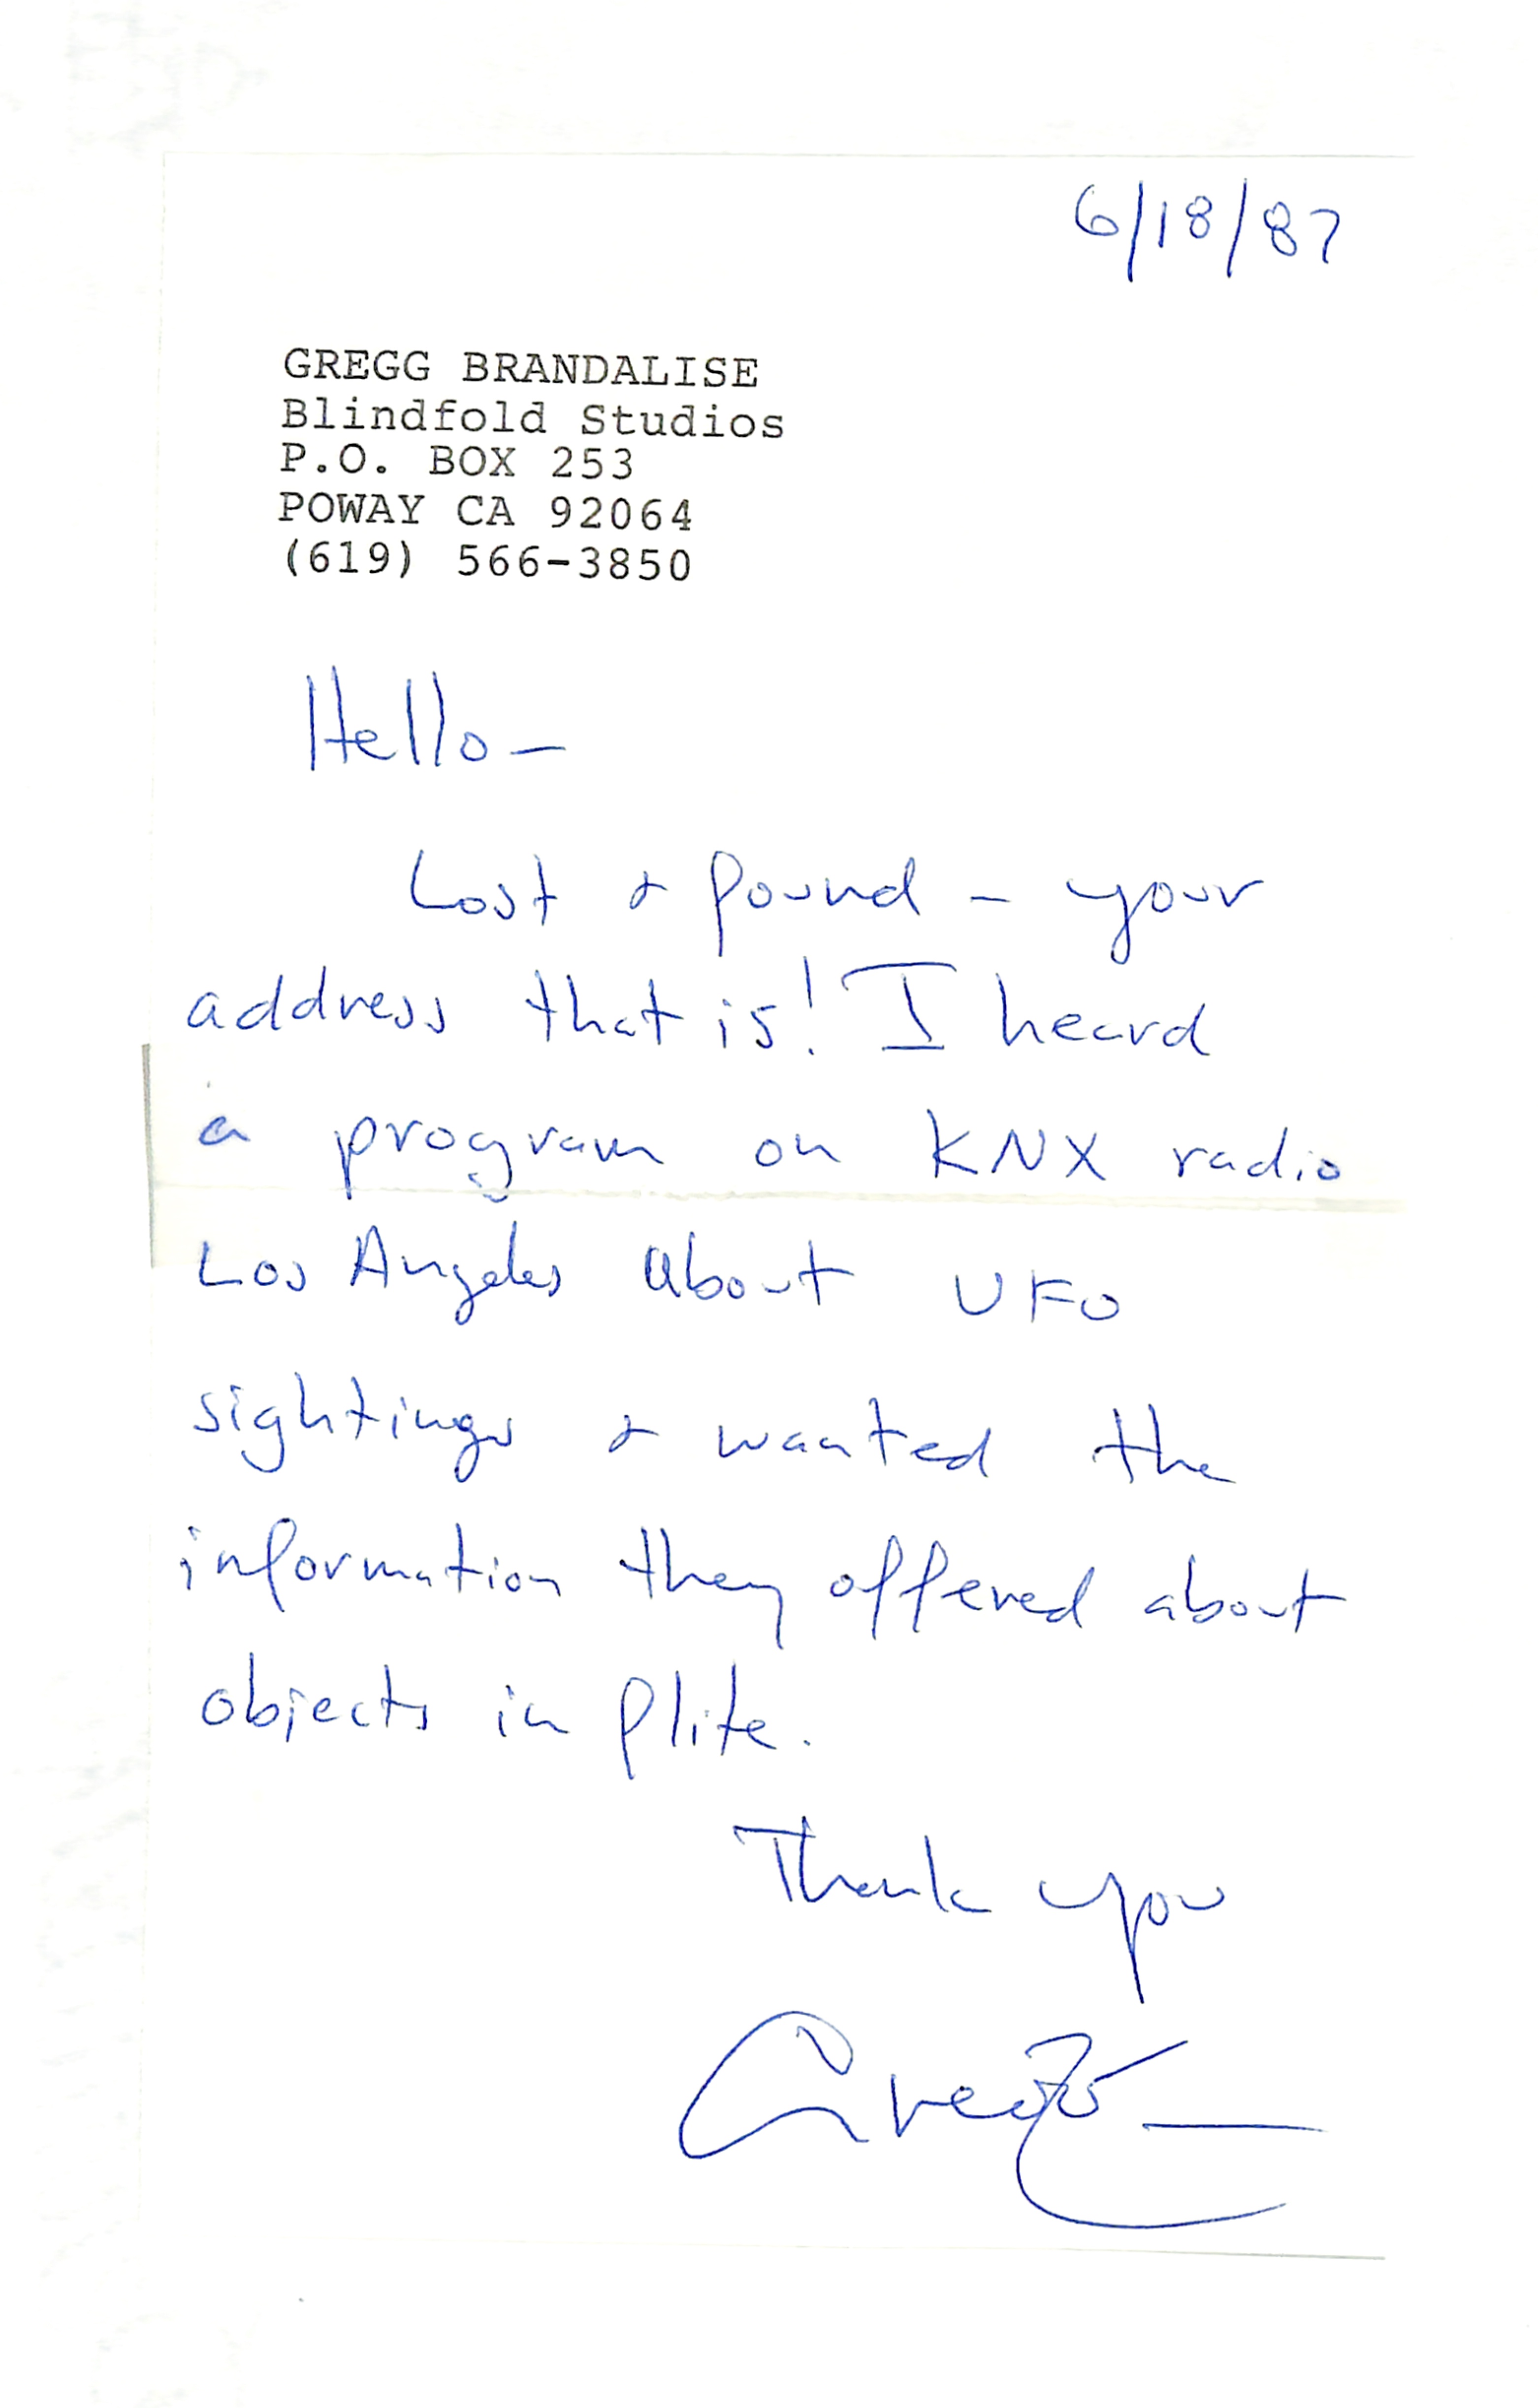 6/18/87
GREGG BRANDALISE
Blindfold Studios
P.O. BOX 253
POWAY CA 92064
(619) 566-3850
Hello –
Lost & found – your
address that is! I heard
a program on KNX radio
Los Angeles about UFO
sightings & wanted the
information they offered about
objects in flite.
Thank you
Gregg –